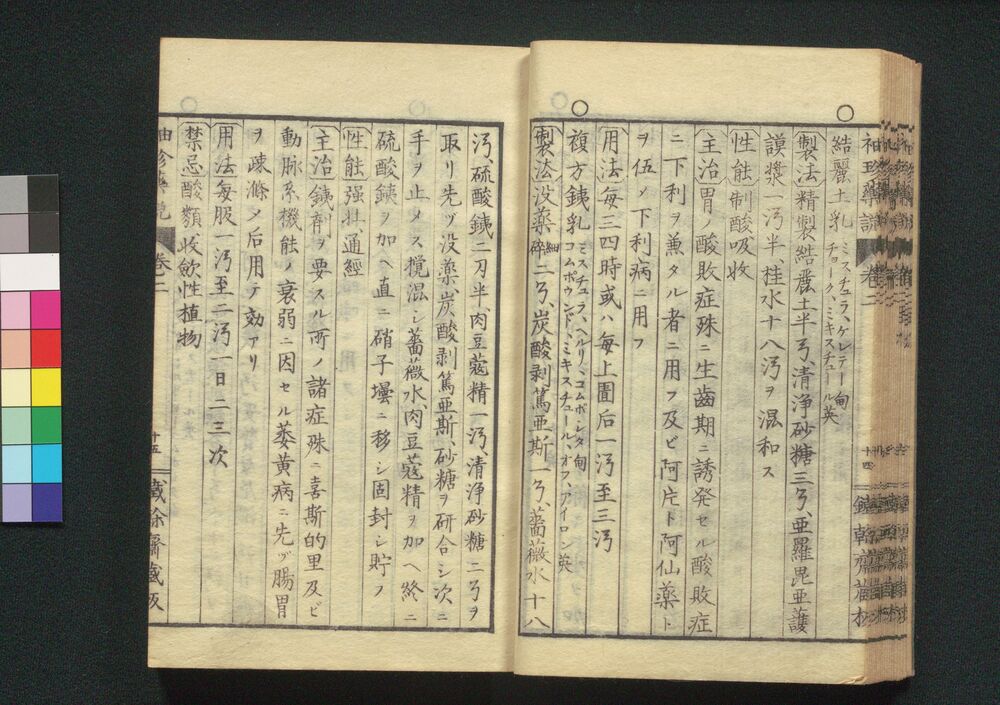 袖珍藥説 卷二 十四
結麗土乳 ミスチュラ、ケレテー甸 チョーク、ミキスチュール英
製法精製結麗土半弓、清浄砂糖三弓、亜羅毘亜護
謨漿一沔半、桂水十八沔ヲ混和ス
性能制酸吸收
主治胃ノ酸敗症殊ニ生齒期ニ誘発セル酸敗症
ニ下利ヲ兼タル者ニ用フ及ビ阿片ト阿仙薬ト
ヲ伍メ下利病ニ用フ
用法每三四時或ハ每上圊后一沔至三沔
複方鐵乳 ミスチュラ、ヘルリ、コムポシタ甸 コムポウンド、ミキスチュール、オフ、アイロン英
製法没薬細碎二弓、炭酸剥篤亜斯一弓、薔薇水十八
沔、硫酸鐵二刃半、肉豆蔻精一沔、清浄砂糖二弓ヲ
取リ先ヅ没薬炭酸剥篤亜斯、砂糖ヲ研合シ次ニ
手ヲ止メス攪混シ薔薇水、肉豆蔻精ヲ加ヘ終ニ
硫酸鐵ヲ加ヘ直ニ硝子壜ニ移シ固封シ貯フ
性能强壯、通經
主治鐵劑ヲ要スル所ノ諸症殊ニ喜斯的里及ビ
動脉系機能ノ衰弱ニ因セル萎黄病ニ先ヅ腸胃
ヲ疎滌メ后用テ効アリ
用法每服一沔至二沔一日二三次
禁忌酸類收斂性植物
卷二 十五